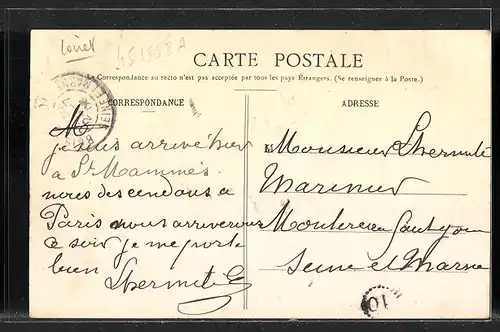 Loiret
451553A
CARTE POSTALE
La Correspondance au recto n'est pas acceptée par tous les pays Étrangers. (Se renseigner à la Poste.)
CORRESPONDANCE
ADRESSE
M
je suis arrivé hier
a St Mammès
nores desendons a
Paris nous arriverons
ce soir je me porte
bien
Lhermite E
Monsieur Lhermite
Marinier
Montereau faut yonne
Seine et Marne
SEINE ET MARNE
10